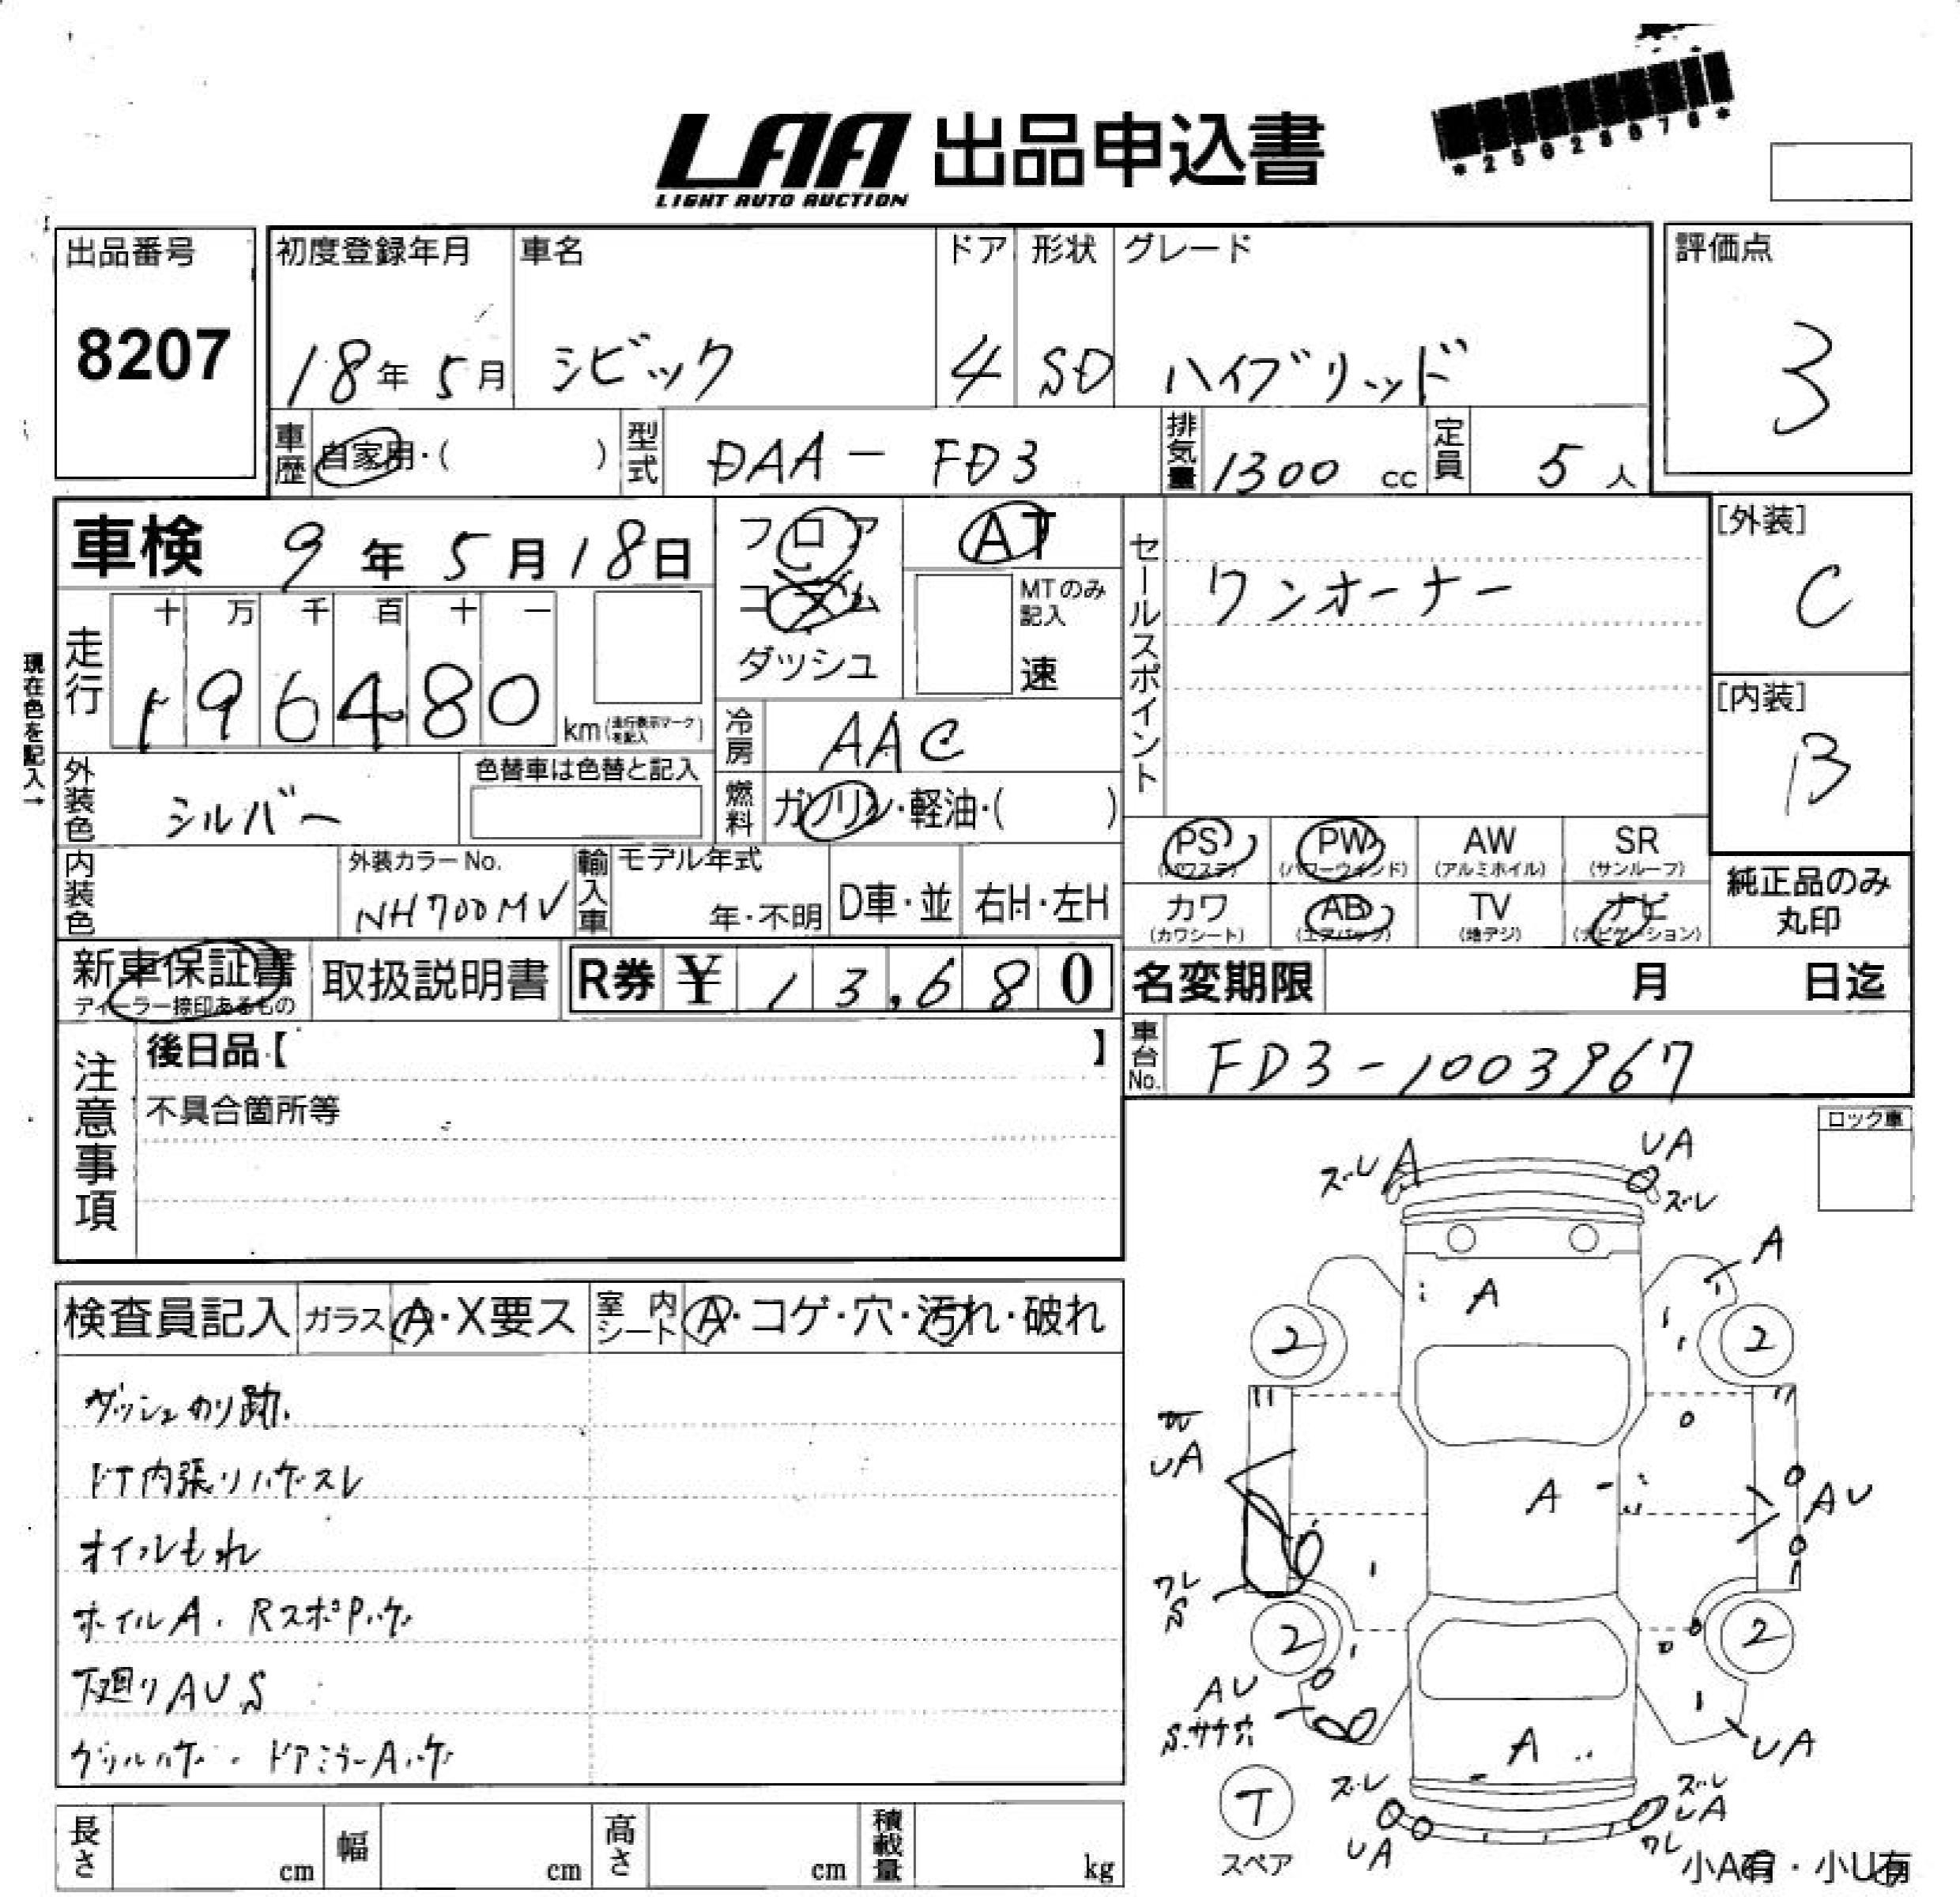 LAA 出品申込書
LIGHT AUTO AUCTION
出品番号
8207
初度登録年月
18年 5月
車名
シビック
ドア
4
形状
SD
グレード
ハイブリッド
評価点
3
車歴 自家用・( )
型式 DAA-FD3
排気量 1300 cc
定員 5 人
車検 9年 5月 18日
フロア
コラム
ダッシュ
AT
MTのみ記入
速
セールスポイント
ワンオーナー
[外装]
C
[内装]
B
現在色を記入→
走行
十 万 千 百 十 一
1 9 6 4 8 0 km (走行表示マークを記入)
冷房 AAC
外装色 シルバー
色替車は色替と記入
燃料 ガソリン・軽油・( )
内装色
外装カラーNo.
NH700MV
輸入車
モデル年式
年・不明
D車・並
右H・左H
PS (パワステ)
PW (パワーウインド)
AW (アルミホイル)
SR (サンルーフ)
カワ (カワシート)
AB (エアバッグ)
TV (地デジ)
ナビ (ナビゲーション)
純正品のみ
丸印
新車保証書
ディーラー捺印あるもの
取扱説明書
R券 ¥ 13,680
名変期限 月 日迄
車台No. FD3-1003967
注意事項
後日品【 】
不具合箇所等
ロック車
検査員記入
ガラス A・X要ス
室内シート A・コゲ・穴・汚れ・破れ
ダッシュのり跡
ドア内張りハゲスレ
オイルもれ
ホイルA. RスポPハゲ
下廻りAUS
グリルハゲ. ドアミラーAハゲ
ズレ A
UA
ズレ
A
A
2
2
UA
A
AU
ワレ
S
2
2
AU
S.サナ穴
A
UA
T
スペア
ズレ
UA
ズレ
UA
ワレ
小A有・小U有
長さ cm
幅 cm
高さ cm
積載量 kg